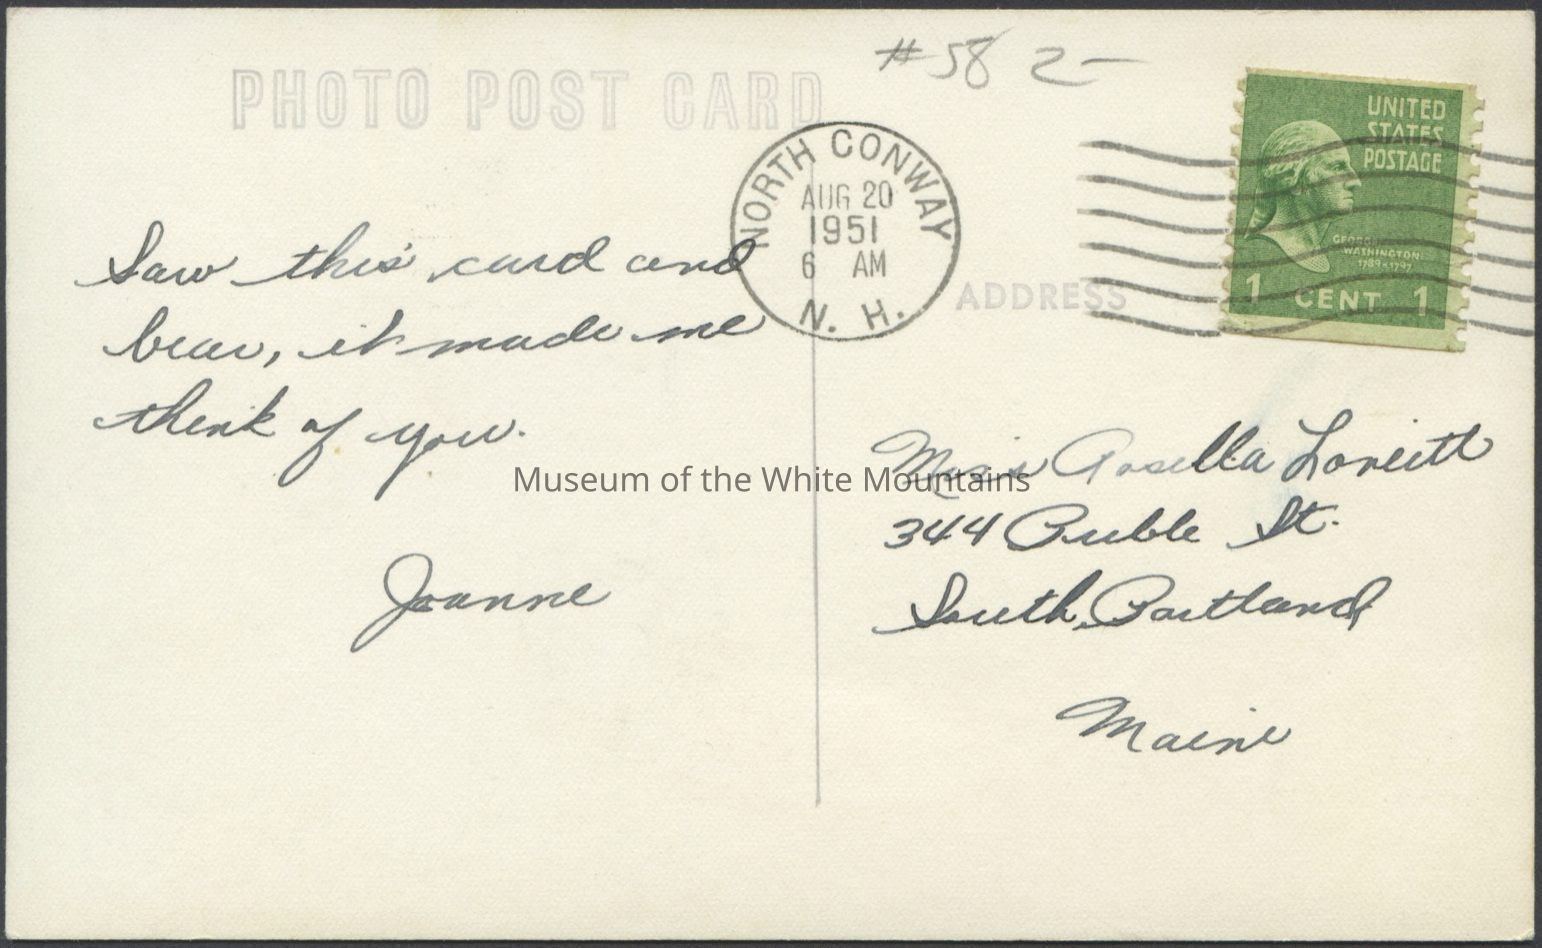 #58 2-
PHOTO POST CARD
UNITED
STATES
POSTAGE
GEORGE
WASHINGTON
1789-1797
1 CENT 1
NORTH CONWAY
AUG 20
1951
6 AM
N. H.
ADDRESS
Saw this card and
bear, it made me
think of you.
Joanne
Miss Rosella Loveitt
344 Preble St.
South Portland
Maine
Museum of the White Mountains